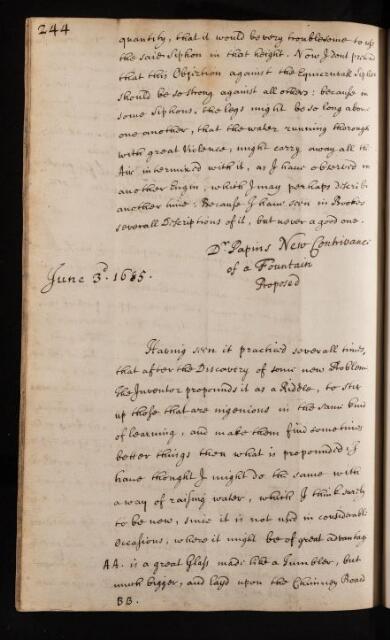 244
quantity, that it would be very troublesome to use
the said Siphon in that height. Now I dont pretend
that this Objection against the Equicrurall Siphon
should be so strong against all others: because in
some Siphons, the legs might be so long above
one another, that the water running thorough
with great Violence, might carry away all the
Air intermixed with it, as I have observed in
another Engin, which I may perhaps describe
another time: Because I have seen in Bookes
severall Descriptions of it, but never a good one.
Dr. Papins New Contrivance
of a Fountain
Proposed
June 3d. 1685.
Having seen it practised severall times,
that after the Discovery of some new Problem
the Inventor propounds it as a Riddle, to stir
up those that are ingenious in the same kind
of learning, and make them find sometimes
better things then what is propounded: I
have thought I might do the same with
a way of raising water, which I think surely
to be new, since it is not used in considerable
Occasions, where it might be of great advantag
AA. is a great Glass made like a Tumbler, but
much bigger, and layd upon the Chimney Board
BB.